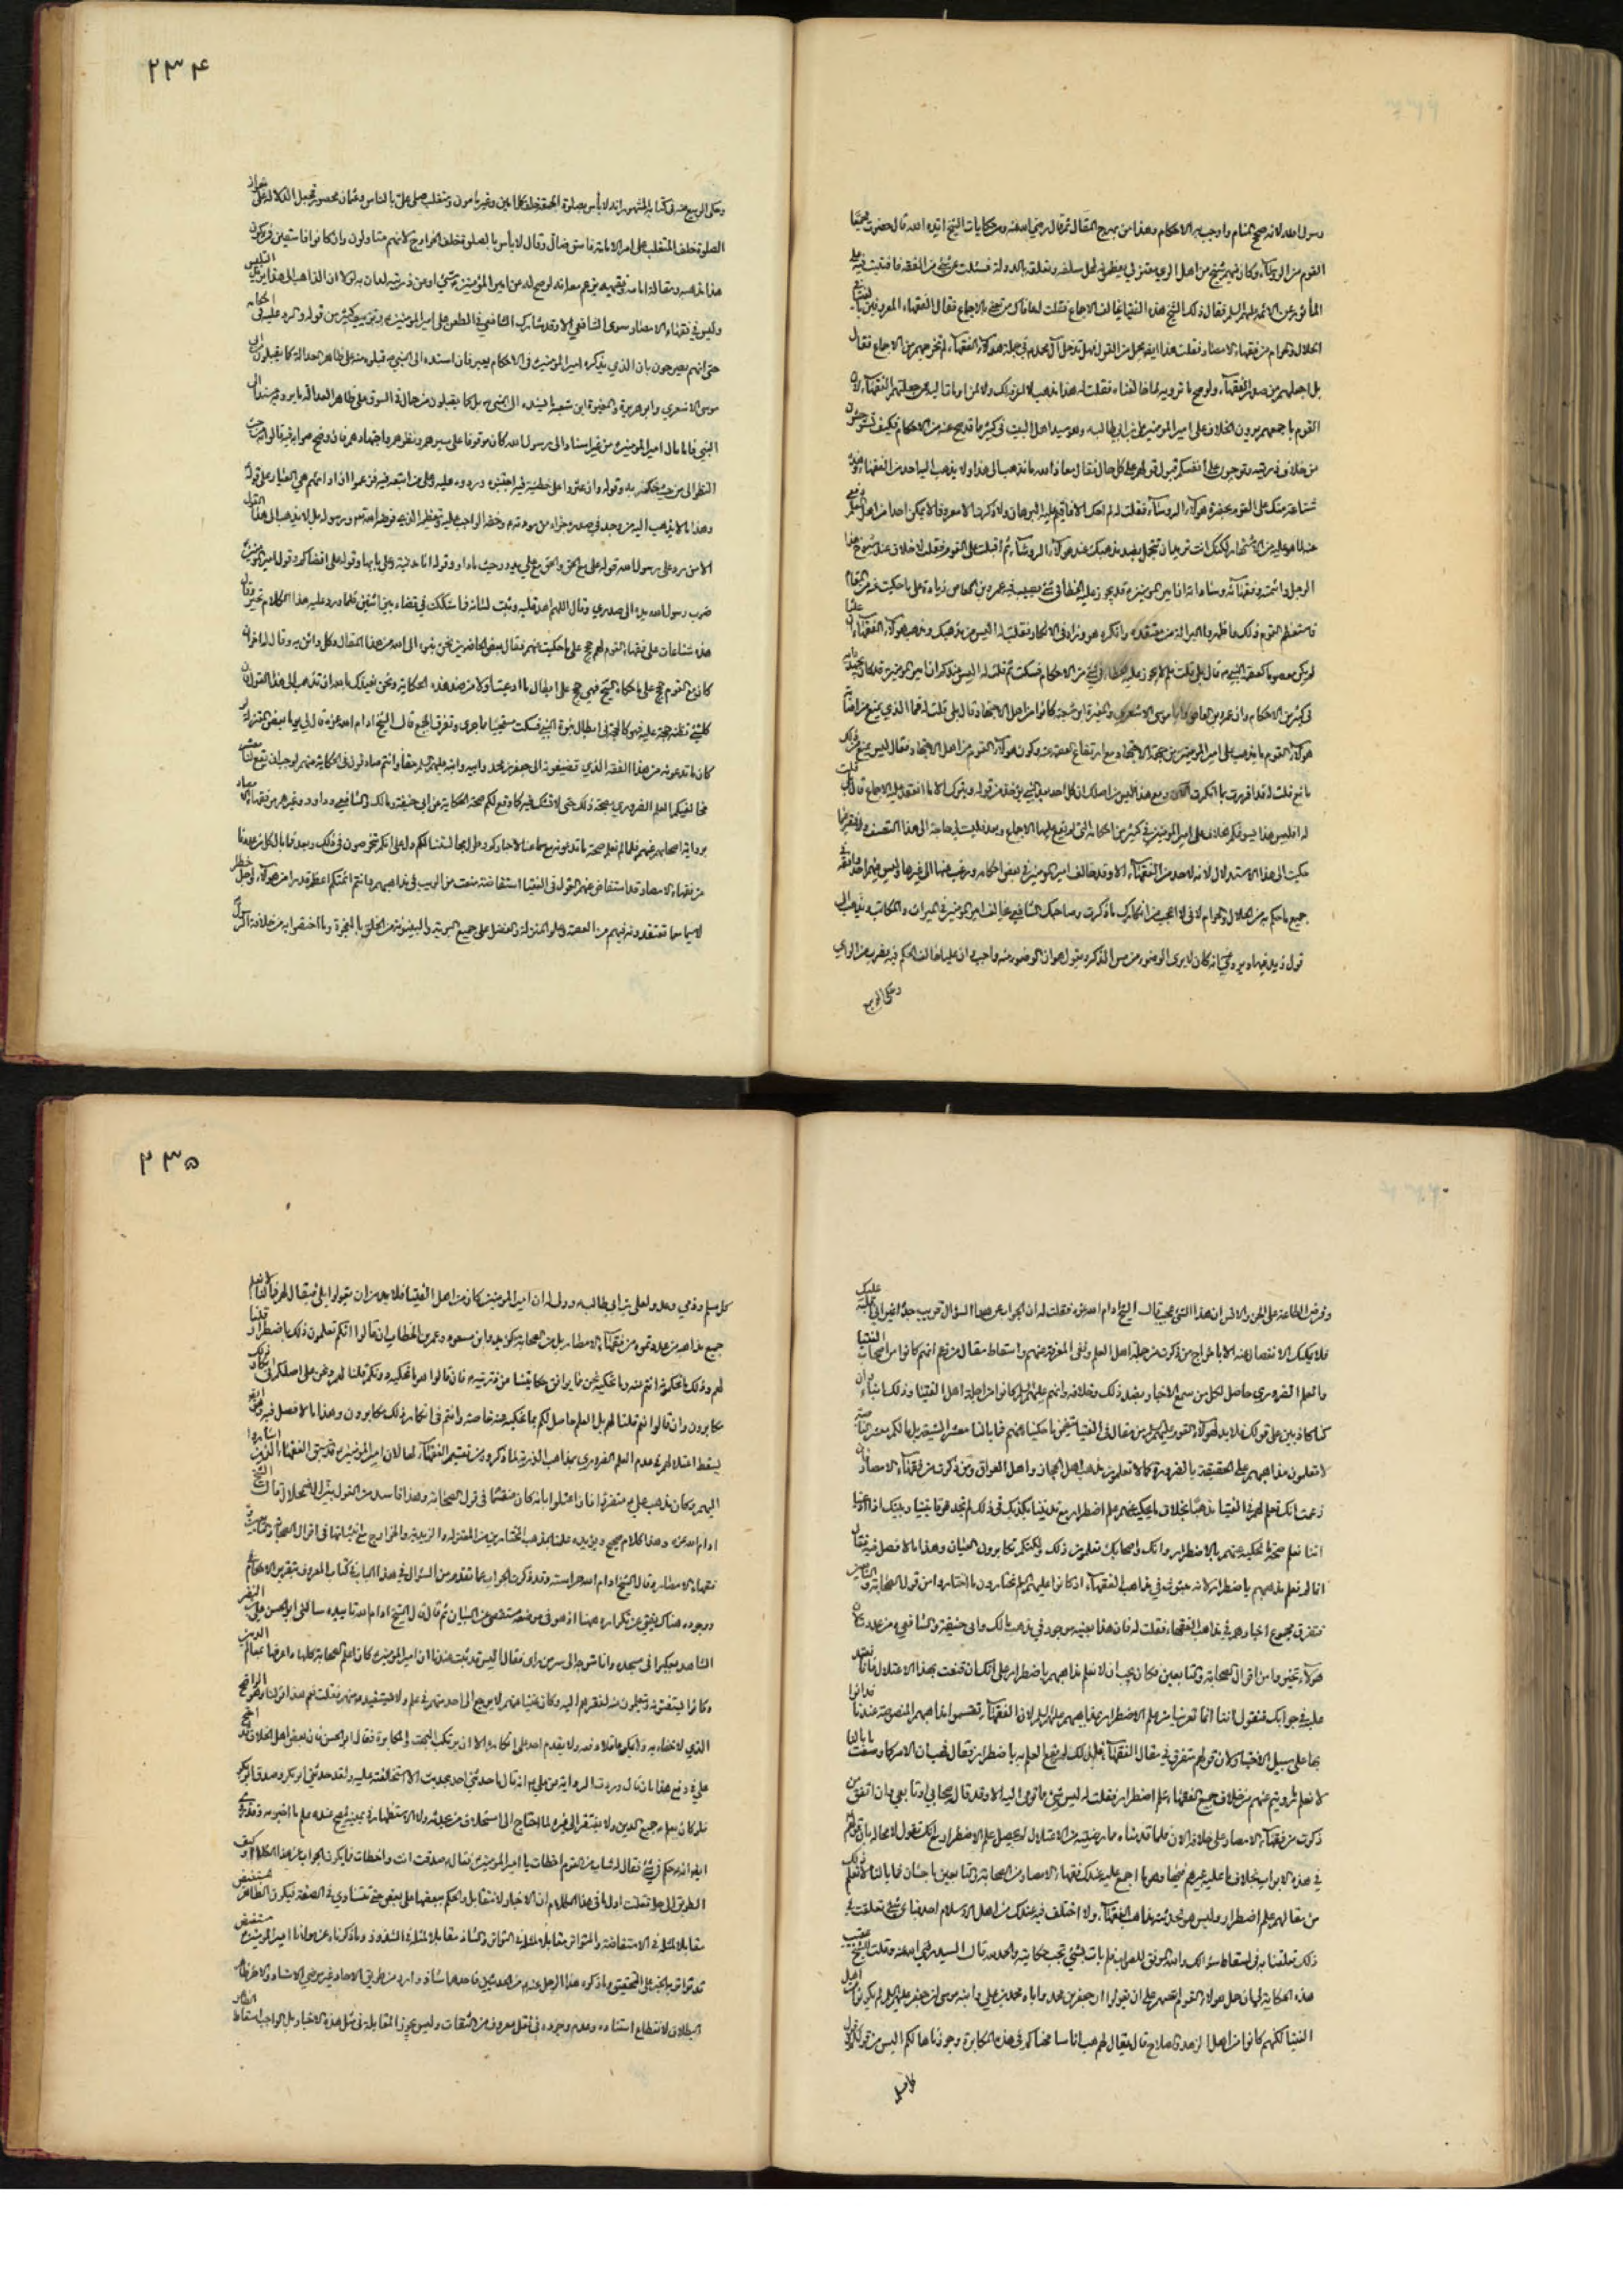 رسول الله لانه صح تمتام واوجب به الاحكام وهذا من صريح المقال ثم قال رضي الله عنه ومن حكايات الشيخ ايده الله قال حضرت مجمعا
القوم من الرؤساء وكان فيهم شيخ من اهل الري معتزلي يعظمونه لمحل سلفه وتعلقه بالدولة فسئلت عن شيء من الفقه فافتيت فيه على
المأثور عن الائمة عليهم السلم فقال ذلك الشيخ هذه الفتيا يخالف الاجماع فقلت له عافاك من تعني بالاجماع فقال الفقهاء المعروفين بالفتيا في
الحلال والحرام من فقهاء الامصار فقلت هذا ايضا مجمل من القول فهل تدخل آل محمد في جملة هؤلاء الفقهاء ام تخرجهم من الاجماع فقال
بل اجعلهم من صدر الفقهاء ولو صح ما ترويه لما خالفناه فقلت له هذا مذهب لا اعرفه لك ولا لمن اومأت اليه ممن جعلتهم الفقهاء لان
القوم باجمعهم يرون الخلاف على امير المؤمنين علي بن ابي طالب وهو سيد اهل البيت في كثير مما قد صح عنه من الاحكام فكيف تستوحشون
من خلاف ذريته وتوجبون على انفسكم قبول قولهم على كل حال فقال معاذ الله ما نذهب الى هذا ولا يذهب اليه احد من الفقهاء وهذه
شناعة منك على القوم بحضرة هؤلاء الرؤساء فقلت له لم احك الا ما اقيم عليه البرهان ولا ذكرت الا معروفا لا يمكن احدا من اهل العلم دفعي
عنه لما هو عليه من الاشتهار لكنك انت تريد ان تتجمل بضد مذهبك عند هؤلاء الرؤساء ثم اقبلت على القوم فقلت لا خلاف عند شيوخ هذا
الرجل وائمته وفقهائه وساداته ان امير المؤمنين قد يجوز عليه الخطأ في شيء يصيب فيه عمرو بن العاص زيادة على ما حكيت عنه من المقال
فاستعظم القوم ذلك واظهروا البراءة من معتقده وانكره هو وزاد في الانكار فقلت له اليس من مذهبك ومذهب هؤلاء الفقهاء ان عليا
لم يكن معصوما كعصمة النبي قال بلى قلت فلم لا يجوز عليه الخطأ في شيء من الاحكام فسكت ثم قلت له اليس عندكم ان امير المؤمنين قد كان يجتهد برأيه
في كثير من الاحكام وان عمرو بن العاص وابا موسى الاشعري والمغيرة ابن شعبة كانوا من اهل الاجتهاد قال بلى قلت له فما الذي يمنع من اصابة
هؤلاء القوم ما يذهب على امير المؤمنين من جهة الاجتهاد مع ارتفاع العصمة عنه وكون هؤلاء القوم من اهل الاجتهاد فقال ليس يمنع من ذلك
مانع قلت له قد اقررت بما انكرت الآن ومع هذا فليس من اصلك ان كل احد بعد النبي يؤخذ من قوله ويترك الا ما انعقد عليه الاجماع قال بلى قلت
له افليس هذا يسوغكم الخلاف على امير المؤمنين في كثير من احكامه التي لم يقع عليها الاجماع وبعد فليست لي حاجة الى هذا التعسف ولا مفتقر فيما
حكيت الى هذا الاستدلال لانه لا احد من الفقهاء الا وقد خالف امير المؤمنين في بعض احكامه ورغب عنها الى غيرها وليس فيهم احد وافقه في
جميع ما حكم به من الحلال والحرام واني لاعجب من انكارك ما ذكرت وصاحبك الشافعي يخالف امير المؤمنين في الميراث والمكاتب ويذهب الى
قول زيد فيهما ويروي عنه انه كان لا يرى الوضوء من مس الذكر ويقول هو ان الوضوء منه واجب وان عليا خالف الحكم فيه بضرب من الراي
وحكى الربيع
۲۳۴
وحكى الربيع عنه في كتابه المشهور انه لا بأس بصلوة الجمعة خلف كل امين وغير مامون ومتغلب صلى علي بالناس وعثمان محصور فجعل الدلالة على جواز
الصلوة خلف المتغلب على امر الامة قاسا ضال وقال لا بأس بالصلوة خلف الخوارج لانهم متاولون وان كانوا فاسقين فمن يكون
هذا مذهبه ومقالة امامه وفقيهه يزعم معاند له صح له عن امير المؤمنين شيء او من ذريته لدان به لولا ان الذاهب الى هذا يريد التلبيس
وليس في فقهاء الامصار سوى الشافعي الا وقد شارك الشافعي في الطعن على امير المؤمنين وتزييف كثير من قوله والرد عليه في احكامه
حتى انهم يصرحون بان الذي يذكره امير المؤمنين في الاحكام يعتبر فان اسنده الى النبي قبلوه منه على ظاهر العدالة كما يقبلون من ابي
موسى الاشعري وابي هريرة والمغيرة ابن شعبة ما يسنده الى النبي بل كما يقبلون من حمال في السوق على ظاهر العدالة ما يرويه مسندا الى
النبي فاما ما قال امير المؤمنين من غير اسناد الى رسول الله كان موقوفا على سبرهم ونظرهم واجتهادهم فان وضح صوابه فيه قالوا به من حيث
النظر لا من حيث حكمه به وقوله وان عثروا على خطئه فيه اجتنبوه وردوه عليه وعلى من اتبعه فيه فزعموا ان اراءهم هي العيار على قوله
وهذا ما لا يذهب اليه من وجد في صدره جزاء من مودته وحقه الواجب عليه وتعظيم الذي فرضه الله ورسوله بل لا يذهب الى هذا القول
الا من رد على رسول الله قوله علي مع الحق والحق مع علي يدور حيث ما دار وقوله انا مدينة العلم وعلي بابها وقوله علي اقضاكم وقول امير المؤمنين
ضرب رسول الله يده الى صدري وقال اللهم اهد قلبه وثبت لسانه فما شككت في قضاء بين اثنين فلما ورد عليه هذا الكلام تحير وقال
هذه شناعات على فقهاء القوم لهم حجج على ما حكيت عنهم فقال بعض الحاضرين نحن نبرء الى الله من هذا المقال وكل دائن به وقال له اخر ان
كان مع القوم حجج على ما حكاه الشيخ فهي حجج على ابطال ما ادعيت اولا من ضد هذه الحكاية ونحن نعيذك بالله ان تذهب الى هذا القول فان
كل شيء تظنه حجة عليه فهو كالحجة في ابطال نبوة النبي فسكت مستحييا مما جرى وتفرق الجمع قال الشيخ ادام الله عزه قال لي يوما بعض المعتزلة لو
كان ما تدعونه من هذا الفقه الذي تضيفونه الى جعفر بن محمد وابيه وابنه عليهم السلم حقا وانتم صادقون في الحكاية عنهم لوجب ان يقع لنا معشر
مخالفيكم العلم الضروري بصحة ذلك حتى لا نشك فيه كما وقع لكم صحة الحكاية عن ابي حنيفة ومالك والشافعي وداود وغيرهم من فقهاء الامصار
برواية اصحابهم عنهم فلما لم نعلم صحة ما تدعونه مع سماعنا لاخباركم وطول مجالستنا لكم دل على انكم متخرصون في ذلك وبعد فما بال كل من عددنا
من فقهاء الامصار قد استفاض عنهم القول في الفتيا استفاضة منعت من الريب في مذاهبهم وانتم ائمتكم اعظم قدرا من هؤلاء واجل خطرا
لا سيما مع ما تعتقدونه فيهم من العصمة وعلو المنزلة والفضل على جميع البرية والبينونة من الخلق بالمعجزة وما اختصوا به من خلافة الرسول
وفرض الطاعة على الجن والانس ان هذا الشيء عجيب قال الشيخ ادام الله عزه فقلت له ان الجواب عن هذا السؤال قريب جدا غير اني اقلبه عليك
فلا يمكنك الانفصال منه الا باخراج من ذكرت من جملة اهل العلم ونفي المعرفة عنهم واسقاط مقال من زعم انهم كانوا من اصحاب الفتيا
والعلم الضروري حاصل لكل من سمع الاخبار بضد ذلك وخلافه وانهم عليهم السلم كانوا من اجلة اهل الفتيا وذلك انا وان
كنا كاذبين على قولك فلا بد لهؤلاء القوم عليهم السلم من مقال في الفتيا يتضمن ما حكيناه عنهم فما بالنا معشر الشيعة بل ما بالكم معشر الناصبة
لا تعلمون مذاهبهم على الحقيقة بالضرورة كما لا تعلمون مذهب اهل الحجاز واهل العراق ومن ذكرت من فقهاء الامصار فان
زعمت انك تعلم لهم في الفتيا مذهبا بخلاف ما يحكى عنهم علم اضطرار مع تديننا بكذبك في ذلك لم تجد فرقا بيننا وبينك اذا ادعينا
اننا نعلم صحة ما نحكيه عنهم بالاضطرار وانك واصحابك تعلمون ذلك ولكنكم تكابرون العيان وهذا ما لا فصل فيه فقال
انما لم نعلم مذهبهم باضطرار لانه مبثوث في مذاهب الفقهاء اذ كانوا عليهم السلم يختارون ما اختاروا من قول الصحابة والتابعين
فتفرق مجموع اختيارهم في مذاهب الفقهاء فقلت له فان هذا بعينه موجود في مذهب مالك وابي حنيفة والشافعي ومن عددت لان
هؤلاء تخيروا من اقوال الصحابة والتابعين فكان يجب ان لا نعلم مذاهبهم باضطرار على انك ان قنعت بهذا الاعتلال فانا نعتمد
عليه في جوابك فنقول اننا انما تعرينا من علم الاضطرار بمذاهبهم عليهم السلم لان الفقهاء تقسموا مذاهبهم المنصوصة عندنا فدانوا
بها على سبيل الاختيار لان قولهم متفرق في مقال الفقهاء فلذلك لم يقع العلم به باضطرار فقال فهب ان الامر كما وصفت ما بالنا
لا نعلم ما رويتم عنهم من خلاف جميع الفقهاء علم اضطرار فقلت له ليس شيء مما تومي اليه الا وقد قاله صحابي او تابعي وان اتفق من
ذكرت من فقهاء الامصار على خلافه الان فلما قد شاء ما رضيته من الاعتلال لم يحصل علم الاضطرار مع انك تقول لا محالة بان قولهم
في هذه الابواب بخلاف ما عليه غيرهم فيها وهو ما اجمع عليه عندك فقهاء الامصار من الصحابة والتابعين باحسان فما بالنا لا نعلم ذلك
من مقالهم علم اضطرار وليس هو مما تحدثته مذاهب الفقهاء ولا اختلف فيه عندك من اهل الاسلام احد فباي شيء تعلقت في
ذلك تعلقنا به في اسقاط سؤالك والله الموفق للصواب فلم يات بشيء تجب حكايته والحمد لله قال السيد رضي الله عنه وقلت للشيخ عقيب
هذه الحكاية لي ان حمل هؤلاء القوم انفسهم على ان يقولوا ان جعفر بن محمد واباه محمد بن علي وابنه موسى ابن جعفر عليهم السلم لم يكونوا من اهل
الفتيا لكنهم كانوا من اهل الزهد والصلاح قال يقال لهم هب انا سامحناكم في هذه المكابرة وجوزناها لكم اليس من قولكم وقول
كل مسلم
۲۳۵
كل مسلم وذمي وعدو لعلي بن ابي طالب وولي له ان امير المؤمنين كان من اهل الفتيا فلا بد من ان يقولوا بلى فيقال لهم فما بالنا لا نعلم
جميع مذاهبه من عددتموه من فقهاء الامصار بل من الصحابة كزيد وابن مسعود وعمر بن الخطاب ان قالوا انكم تعلمون ذلك باضطرار قلنا
لهم وذلك ما تحكونه انتم عنه وما نحكيه نحن مما يوافق حكايتنا عن ذريته فان قالوا هو ما نحكيه دونكم قلنا لهم ونحن على اصلكم في انكار ذلك
مكابرون وان قالوا نعم قلنا لهم بل العلم حاصل لكم بما نحكيه عنه خاصة وانتم في انكار ذلك مكابرون وهذا ما لا فصل فيه وهو ايضا
يسقط اعتلالهم في عدم العلم الضروري بمذاهب الذرية لما ذكروه من تقسيم الفقهاء لها لان امير المؤمنين قد سبق الفقهاء الذين اشاروا
اليهم وكان مذهب علي متفردا فان اعتلوا بانه كان منقسما في قول الصحابة وهذا فاسد من القول بين الانحلال قال الشيخ
ادام الله عزه وهذا كلام صحيح ويؤيده علمنا بمذهب المختارين من المعتزلة والزيدية والخوارج مع انبثاثها في اقوال الصحابة والتابعين
فقهاء الامصار وقال الشيخ ادام الله حراسته وقد ذكرت الجواب عما تقدم من السؤال في هذا الباب في كتابي المعروف بتقرير الاحكام
ووجوده هناك يغني عن تكراره ههنا اذ هو في موضعه مستقصى على البيان ثم قال قال الشيخ ادام الله تاييده سالني ابو الحسن علي بن النصر
الشاهد بعكبرا في مسجده وانا متوجه الى سر من راى فقال اليس قد ثبت عندنا ان امير المؤمنين كان اعلم الصحابة كلها واعرفها بمعالم الدين
وكانوا يستفتونه ويتعلمون منه لفقرهم اليه وكان غنيا عنهم لا يرجع الى احد منهم في علم ولا يستفيد منهم فقلت نعم هذا قولنا وهو الواضح
الذي لا خفاء به ولا يمكن عاقلا دفعه ولا يقدم احد على انكاره الا ان يرتكب البهت والمكابرة فقال ابو الحسن فان بعض اهل الخلاف قد احتج
علي في دفع هذا بان قال وردت الرواية عن علي انه قال ما حدثني احد بحديث الا استحلفته عليه ولقد حدثني ابو بكر وصدق ابو بكر
فلو كان يعلم جميع الدين ولا يفتقر الى غيره لما احتاج الى استحلاف من يحدثه ولا الاستظهار في يمينه ليصح عنده علم ما اخبر به وقد روي
ايضا انه حكم في شيء فقال له شاب من القوم اخطات يا امير المؤمنين فقال له صدقت انت واخطات فما يكون الجواب عن هذا الكلام وكيف
الطريق الى حله فقلت اول ما في هذا الكلام ان الاخبار لا تتقابل ويحكم ببعضها على بعض حتى تتساوى في الصفة فيكون الظاهر المستفيض
مقابلا لمثله في الاستفاضة والمتواتر مقابلا لمثله في التواتر والشاذ مقابلا لمثله في الشذوذ وما ذكرناه عن مولانا امير المؤمنين مستفيض
قد تواتر به الخبر على التحقيق وما ذكره هذا الرجل عنه من الحديثين فاحدهما شاذ وارد من طريق الاحاد غير مرضي الاسناد والاخر ظاهر
البطلان لانقطاع اسناده وعدم وجوده في نقل معروف من الثقات وليس يجوز المقابلة في مثل هذه الاخبار بل الواجب اسقاط الظاهر